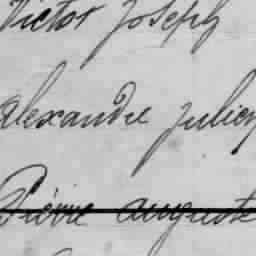 Victor Joseph
Alexandre Julien
Pierre Auguste